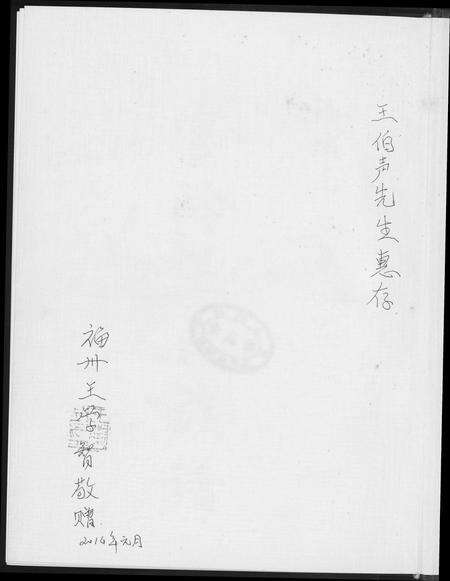 王伯声先生惠存
福州王学智敬赠
2014年元月